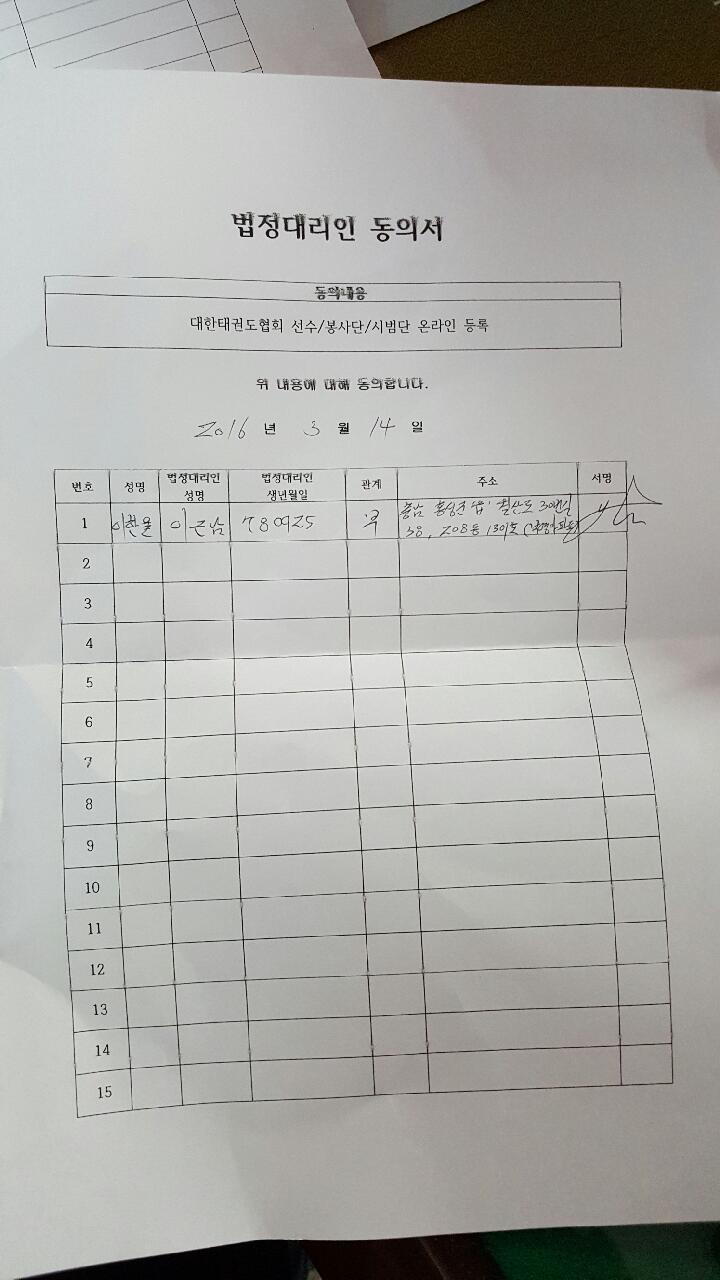 법정대리인 동의서
동의내용
대한태권도협회 선수/봉사단/시범단 온라인 등록
위 내용에 대해 동의합니다.
2016 년 3 월 14 일
번호 성명 법정대리인 성명 법정대리인 생년월일 관계 주소 서명
1 이한울 이근남 780925 부 충남 홍성군 읍 월산로 30번길
30, 208동 1301호
2
3
4
5
6
7
8
9
10
11
12
13
14
15